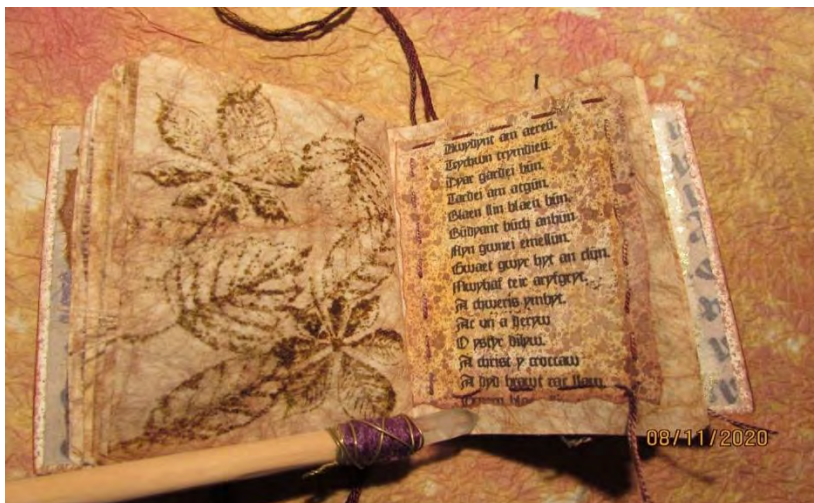 Dwydynt am aereu.
Tychwn trymdieu.
Dyar gardei bün.
Tardei am atgün.
Blaen llin blaen bün.
Büdyant büch anhün
Myn gwnei emellün.
Gwaet gwyr hyt an clün.
Mwyhaf teir aryfgryt.
A chweris ymhyt.
Ac vn a deryw
O ystyr dilyw.
A christ y croccaw
A dyd brawt rac llaw.
08/11/2020